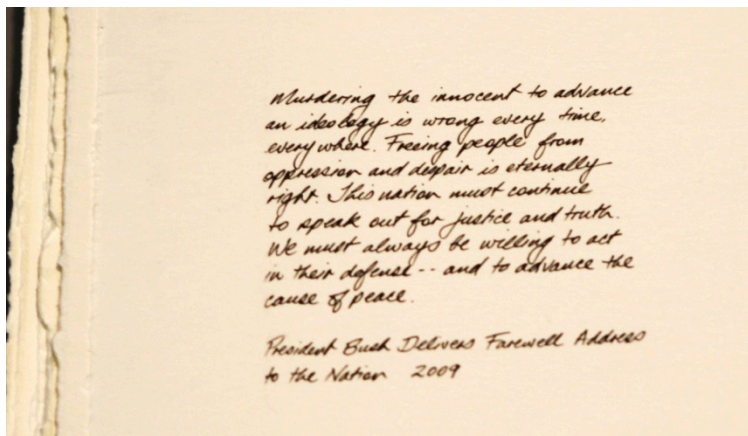 Murdering the innocent to advance
an ideology is wrong every time,
everywhere. Freeing people from
oppression and despair is eternally
right. This nation must continue
to speak out for justice and truth.
We must always be willing to act
in their defense -- and to advance the
cause of peace.
President Bush Delivers Farewell Address
to the Nation 2009